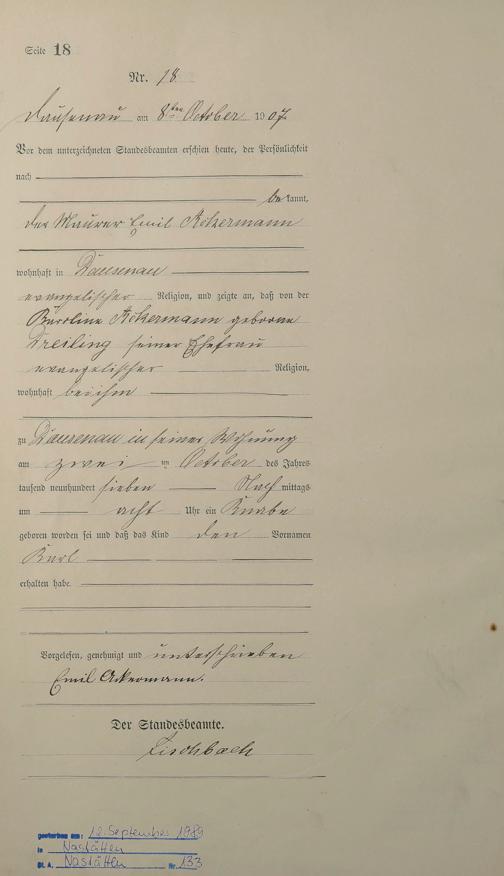 Seite 18
Nr. 18
Dausenau am 8ten October 1907.
Vor dem unterzeichneten Standesbeamten erschien heute, der Persönlichkeit
nach
be kannt,
der Maurer Emil Ackermann
wohnhaft in Dausenau
evangelischer Religion, und zeigte an, daß von der
Karoline Ackermann geborne
Dreiling seiner Ehefrau
evangelischer Religion,
wohnhaft bei ihm
zu Dausenau in seiner Wohnung
am zwei ten October des Jahres
tausend neunhundert sieben Nach mittags
um acht Uhr ein Knabe
geboren worden sei und daß das Kind den Vornamen
Karl
erhalten habe.
Vorgelesen, genehmigt und unterschrieben
Emil Ackermann.
Der Standesbeamte.
Fischbach
gestorben am: 12. September 1989
in Nastätten
St. A. Nastätten Nr. 133